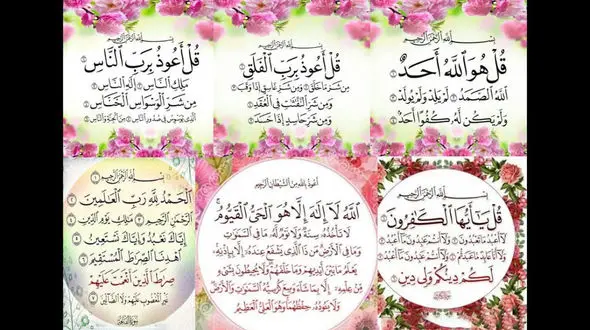 بِسْمِ اللَّهِ الرَّحْمَٰنِ الرَّحِيمِ
قُلْ أَعُوذُ بِرَبِّ النَّاسِ
مَلِكِ النَّاسِ إِلَٰهِ النَّاسِ
مِن شَرِّ الْوَسْوَاسِ الْخَنَّاسِ
الَّذِي يُوَسْوِسُ فِي صُدُورِ النَّاسِ
مِنَ الْجِنَّةِ وَالنَّاسِ
بِسْمِ اللَّهِ الرَّحْمَٰنِ الرَّحِيمِ
قُلْ أَعُوذُ بِرَبِّ الْفَلَقِ
مِن شَرِّ مَا خَلَقَ وَمِن شَرِّ غَاسِقٍ إِذَا وَقَبَ
وَمِن شَرِّ النَّفَّاثَاتِ فِي الْعُقَدِ
وَمِن شَرِّ حَاسِدٍ إِذَا حَسَدَ
بِسْمِ اللَّهِ الرَّحْمَٰنِ الرَّحِيمِ
قُلْ هُوَ اللَّهُ أَحَدٌ
اللَّهُ الصَّمَدُ لَمْ يَلِدْ وَلَمْ يُولَدْ
وَلَمْ يَكُن لَّهُ كُفُوًا أَحَدٌ
بِسْمِ اللَّهِ الرَّحْمَٰنِ الرَّحِيمِ
الْحَمْدُ لِلَّهِ رَبِّ الْعَالَمِينَ
الرَّحْمَٰنِ الرَّحِيمِ مَالِكِ يَوْمِ الدِّينِ
إِيَّاكَ نَعْبُدُ وَإِيَّاكَ نَسْتَعِينُ
اهْدِنَا الصِّرَاطَ الْمُسْتَقِيمَ
صِرَاطَ الَّذِينَ أَنْعَمْتَ عَلَيْهِمْ
غَيْرِ الْمَغْضُوبِ عَلَيْهِمْ وَلَا الضَّالِّينَ
أعوذ بالله من الشيطان الرجيم
اللَّهُ لَا إِلَٰهَ إِلَّا هُوَ الْحَيُّ الْقَيُّومُ
لَا تَأْخُذُهُ سِنَةٌ وَلَا نَوْمٌ لَّهُ مَا فِي السَّمَاوَاتِ
وَمَا فِي الْأَرْضِ مَن ذَا الَّذِي يَشْفَعُ عِندَهُ إِلَّا بِإِذْنِهِ
يَعْلَمُ مَا بَيْنَ أَيْدِيهِمْ وَمَا خَلْفَهُمْ وَلَا يُحِيطُونَ بِشَيْءٍ
مِّنْ عِلْمِهِ إِلَّا بِمَا شَاءَ وَسِعَ كُرْسِيُّهُ السَّمَاوَاتِ وَالْأَرْضَ
وَلَا يَئُودُهُ حِفْظُهُمَا وَهُوَ الْعَلِيُّ الْعَظِيمُ
بِسْمِ اللَّهِ الرَّحْمَٰنِ الرَّحِيمِ
قُلْ يَا أَيُّهَا الْكَافِرُونَ
لَا أَعْبُدُ مَا تَعْبُدُونَ وَلَا أَنتُمْ عَابِدُونَ مَا أَعْبُدُ
وَلَا أَنَا عَابِدٌ مَّا عَبَدتُّمْ وَلَا أَنتُمْ عَابِدُونَ مَا أَعْبُدُ
لَكُمْ دِينُكُمْ وَلِيَ دِينِ